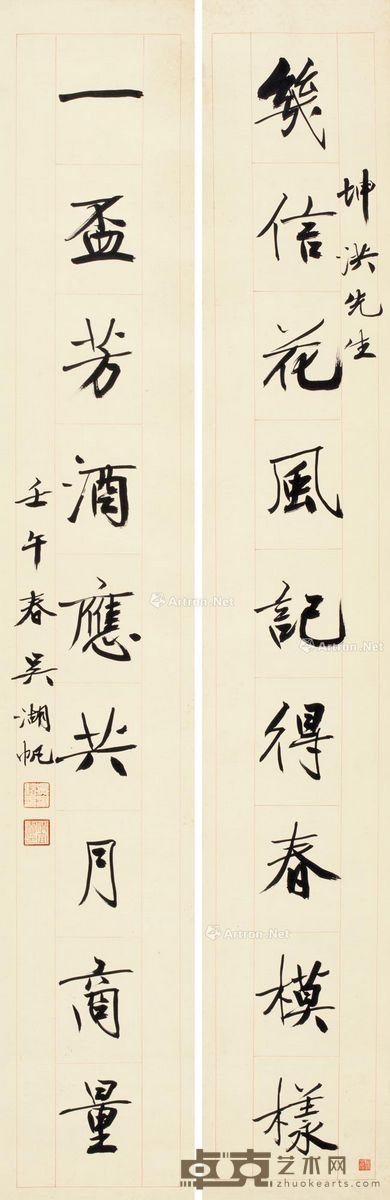 坤洪先生
幾信花風記得春模樣
一盃芳酒應共月商量
壬午春吳湖帆
Artron.Net
Artron.Net
Artron.Net
卓克艺术网
zhuokearts.com